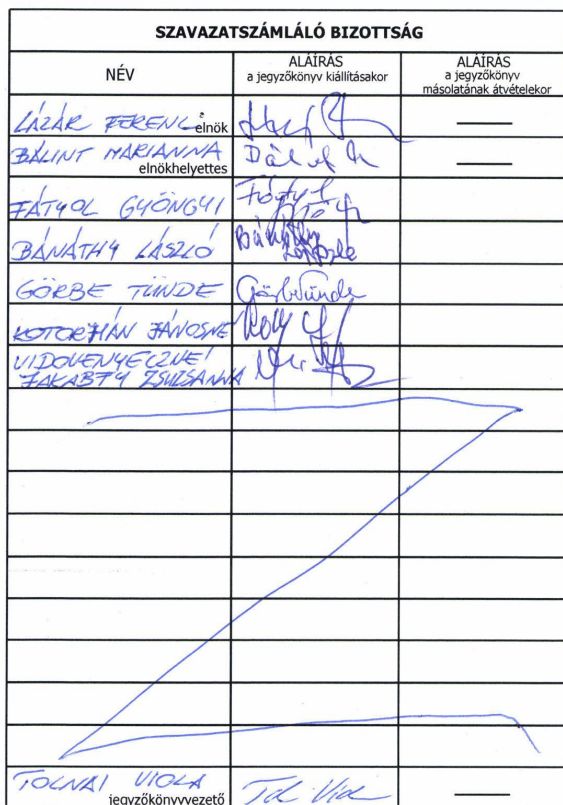 SZAVAZATSZÁMLÁLÓ BIZOTTSÁG
NÉV
ALÁÍRÁS
a jegyzőkönyv kiállításakor
ALÁÍRÁS
a jegyzőkönyv
másolatának átvételekor
LÁZÁR FERENC elnök
BÁLINT MARIANNA
elnökhelyettes
FÁTYOL GYÖNGYI
BÁNÁTHY LÁSZLÓ
GÖRBE TÜNDE Görbe Tünde
KOTORMÁN JÁNOSNÉ
VIDOVENYECZNÉ
JAKABFY ZSUZSANNA
TOLNAI VIOLA
jegyzőkönyvvezető